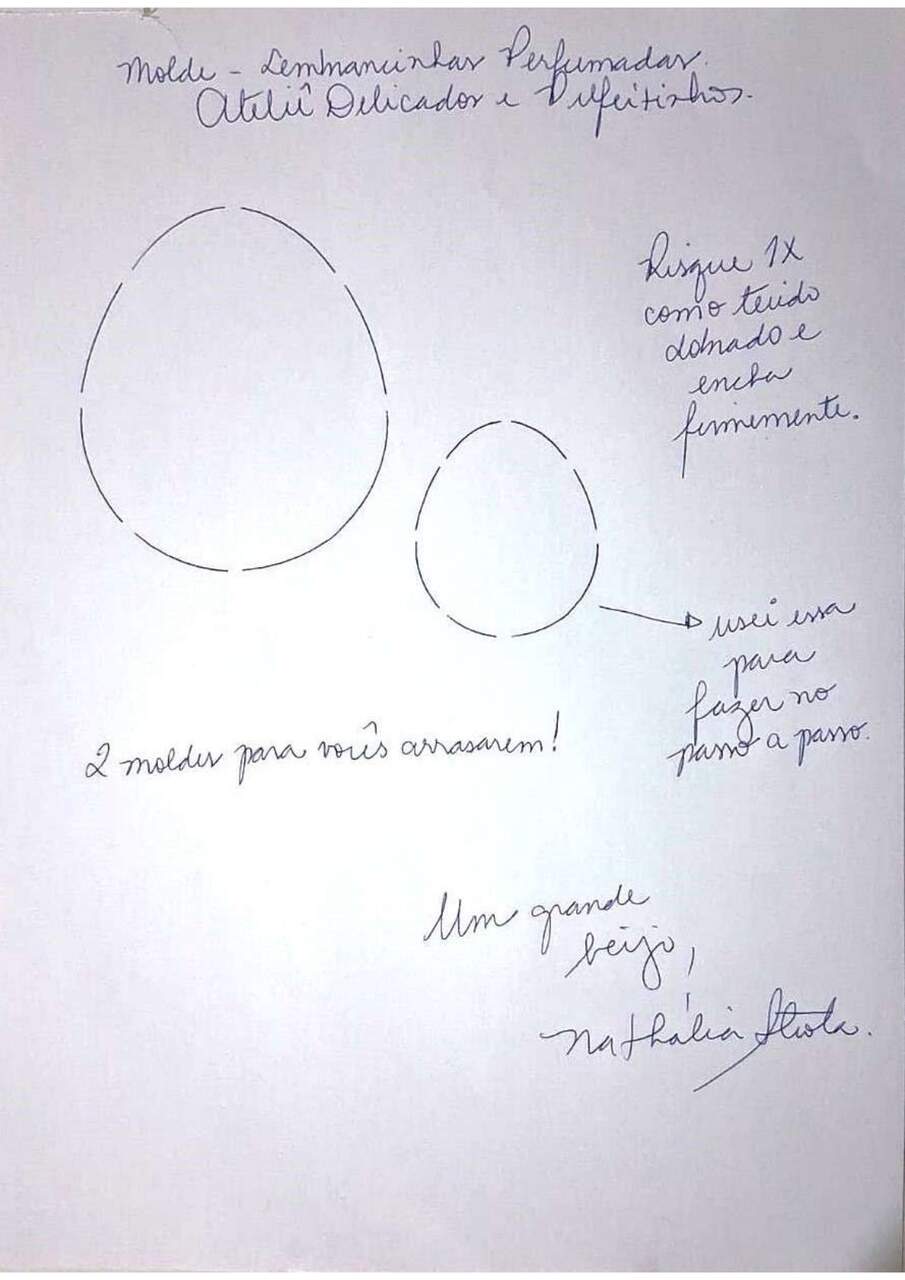 Molde - Lembrancinhas Perfumadas.
Ateliê Delicados e Dilfeitinhos.
Risque 1X
como tecido
dobrado e
encha
firmemente.
usei essa
para
fazer no
passo a passo.
2 moldes para vocês arrasarem!
Um grande
beijo,
Nathália